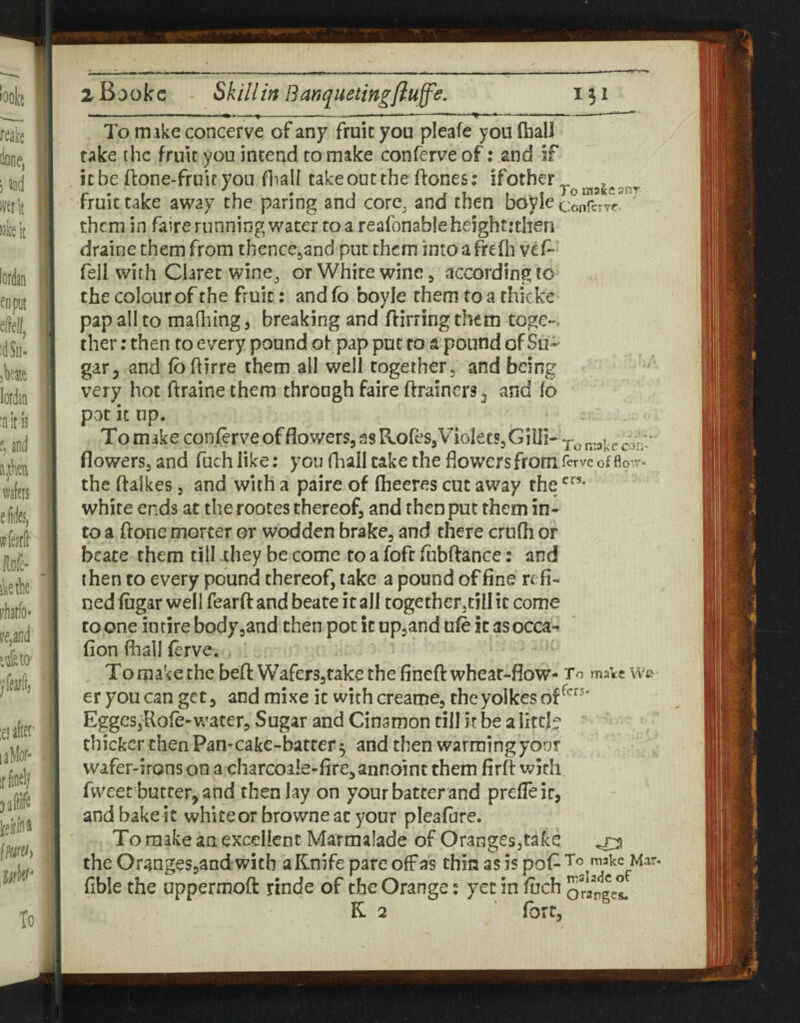 2 Booke Skill in Banqueting ſtuffe. 131
To make concerve of any fruit you pleaſe you ſhall
take the fruit you intend to make conſerve of : and if
it be ſtone-fruit you ſhall take out the ſtones: if other
fruit take away the paring and core, and then boyle
them in faire running water to a reaſonable height: then
draine them from thence, and put them into a freſh veſ-
ſell with Claret wine, or White wine, according to
the colour of the fruit : and ſo boyle them to a thicke
pap all to maſhing, breaking and ſtirring them toge-
ther : then to every pound of pap put to a pound of Su-
gar, and ſo ſtirre them all well together, and being
very hot ſtraine them through faire ſtrainers, and ſo
pot it up.
To make any
Conſerve.
To make conſerve of flowers, as Roſes, Violets, Gilli-
flowers, and ſuch like: you ſhall take the flowers from
the ſtalkes, and with a paire of ſheeres cut away the
white ends at the rootes thereof, and then put them in-
to a ſtone morter or wodden brake, and there cruſh or
beate them till they be come to a ſoft ſubſtance: and
then to every pound thereof, take a pound of fine refi-
ned ſugar well ſearſt and beate it all together, till it come
to one intire body, and then pot it up, and uſe it as occa-
ſion ſhall ſerve.
To make con-
ſerve of flow-
ers.
To make the beſt Wafers, take the fineſt wheat-flow-
er you can get, and mixe it with creame, the yolkes of
Egges, Roſe-water, Sugar and Cinamon till it be a little
thicker then Pan-cake-batter; and then warming your
wafer-irons on a charcoale-fire, annoint them firſt with
ſweet butter, and then lay on your batter and preſſe it,
and bake it white or browne at your pleaſure.
To make Wa-
fers.
To make an excellent Marmalade of Oranges, take
the Oranges, and with a Knife pare off as thin as is poſ-
ſible the uppermoſt rinde of the Orange: yet in ſuch
To make Mar-
malade of
Oranges.
K 2 ſort,